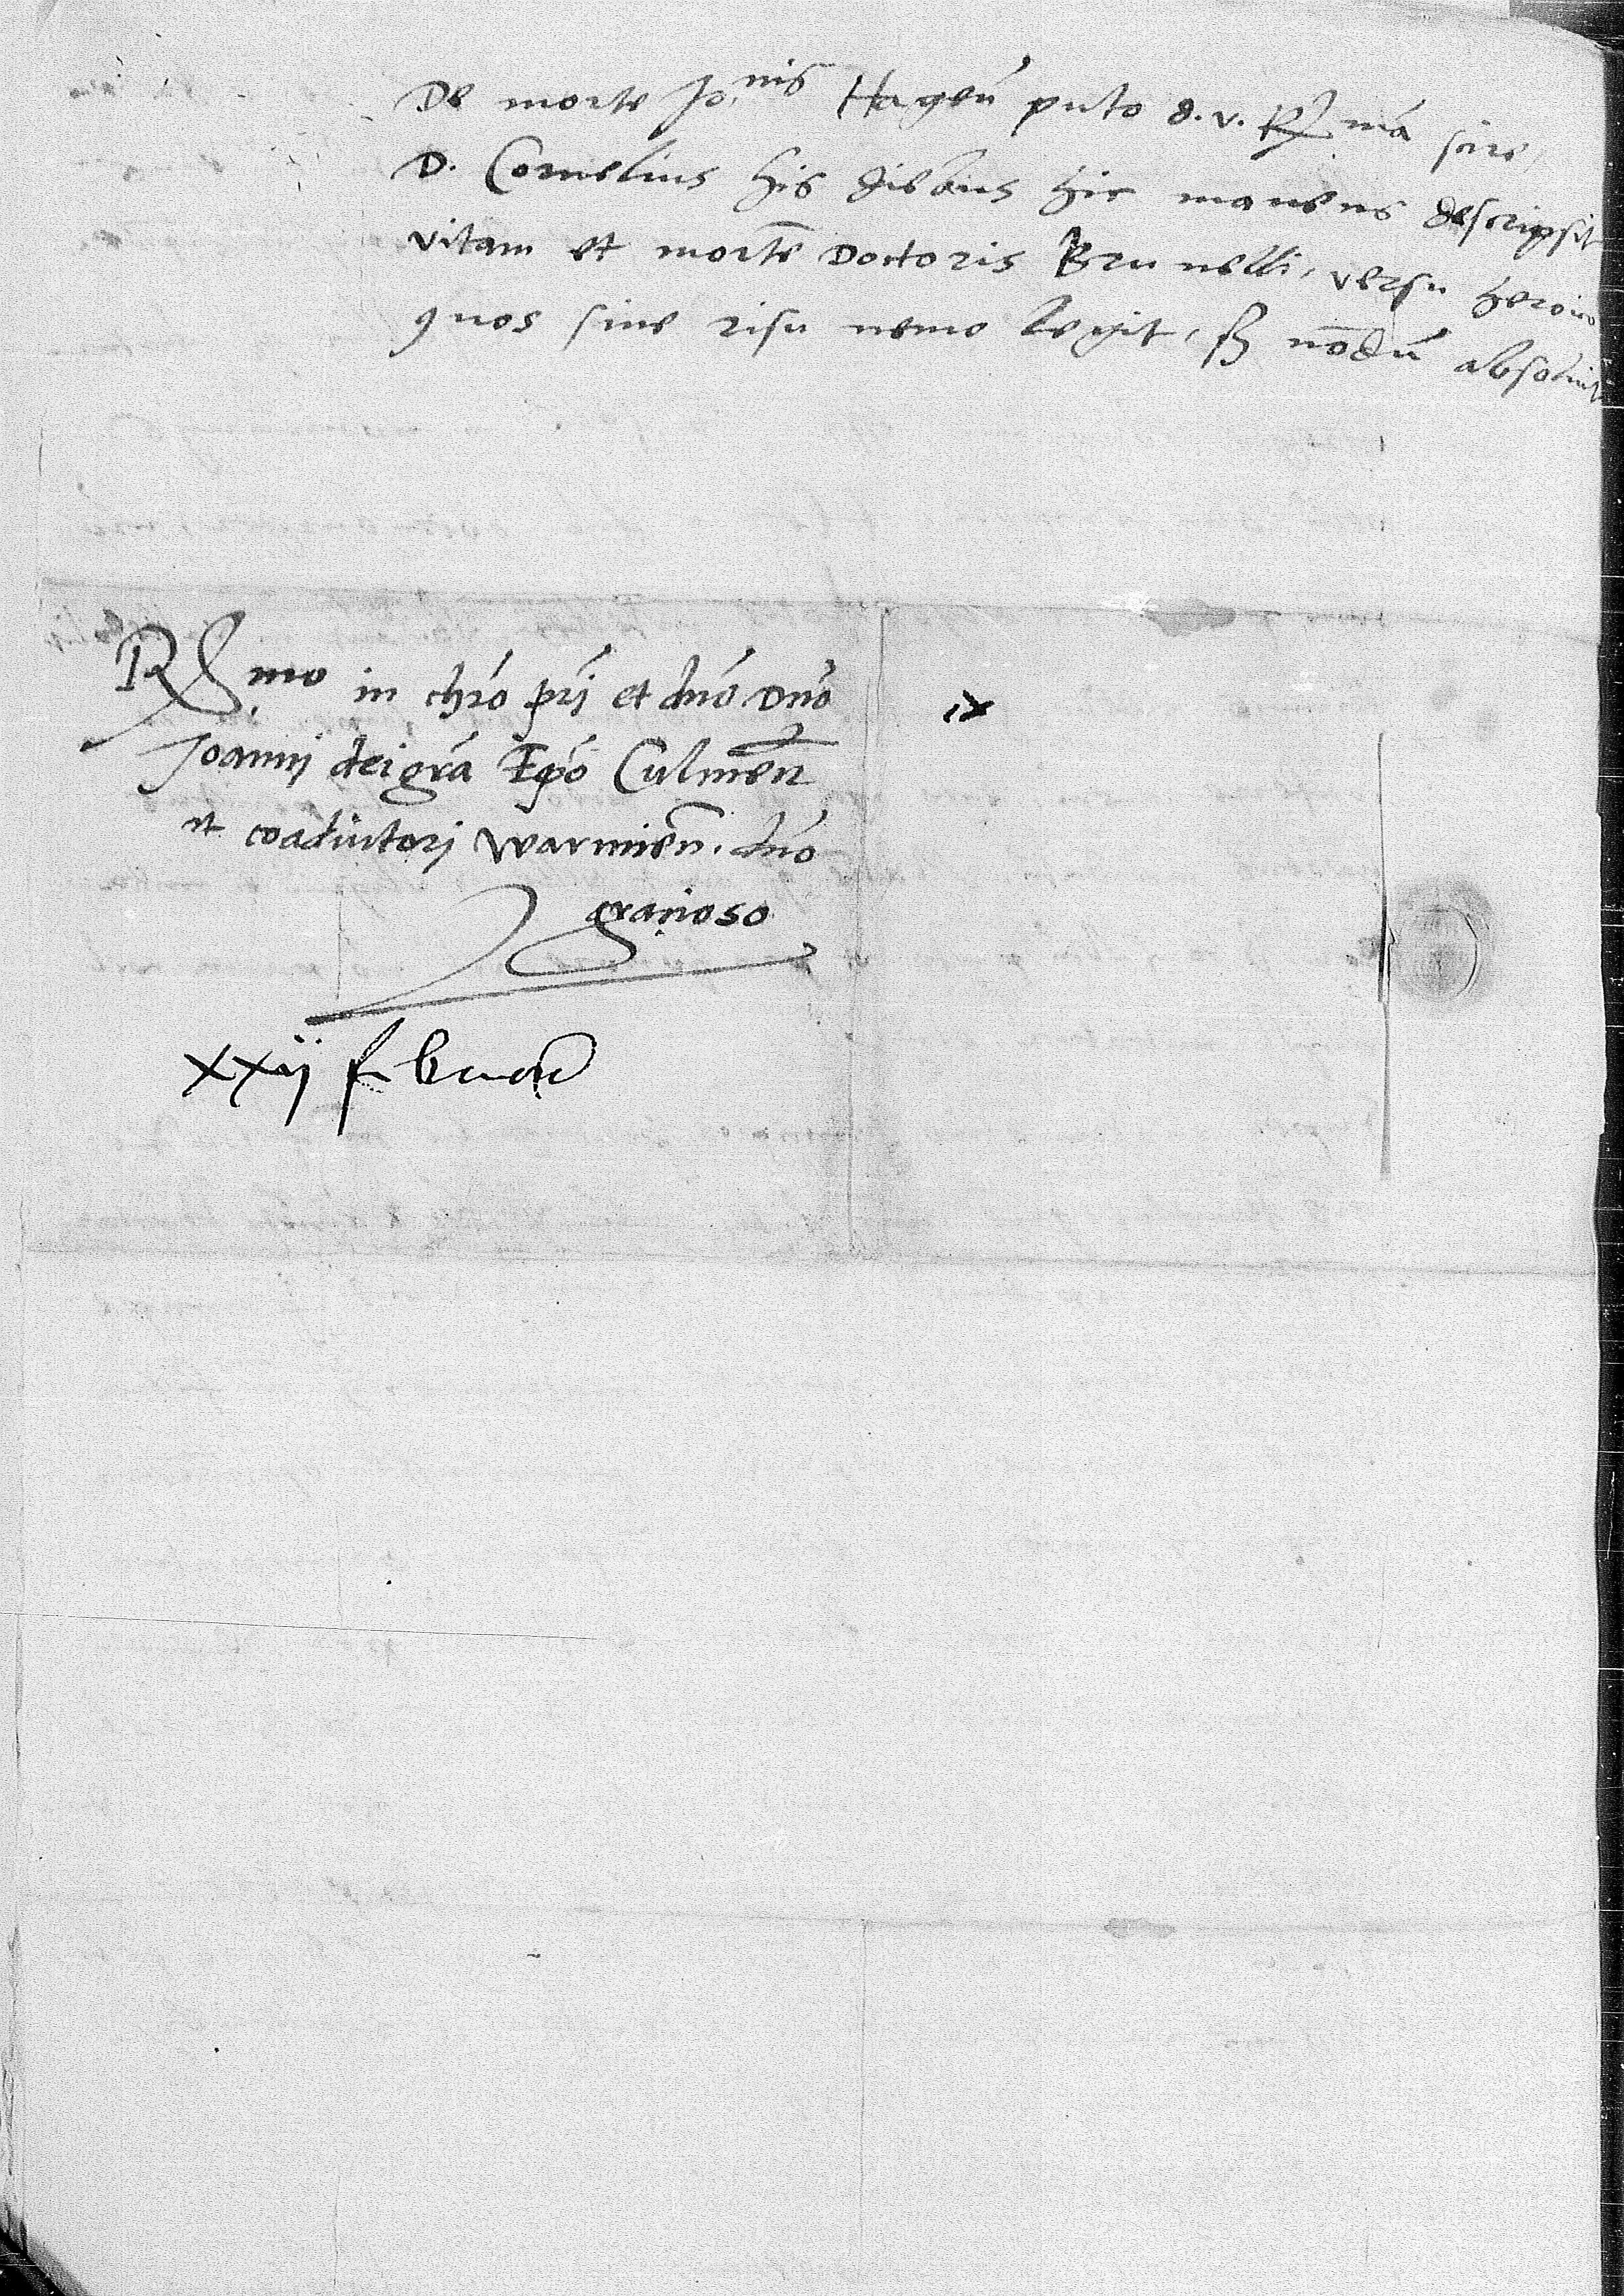 De morte Jo.nis Hagen̄ puto d. v. R.ma scire,
D. Cornelius his diebus hic manens descripsit
vitam et mortē Doctoris Brunelli, versu heroico
quos sine risu nemo legit, sz nōdū absoluit
R.mo in chr̄o pr̄i et dn̄o Dn̄o
Joanni dei gr̄a Ep̄o Culmen̄
et coadiutori Warmien̄. dn̄o
gratioso
ix
xxij februarij